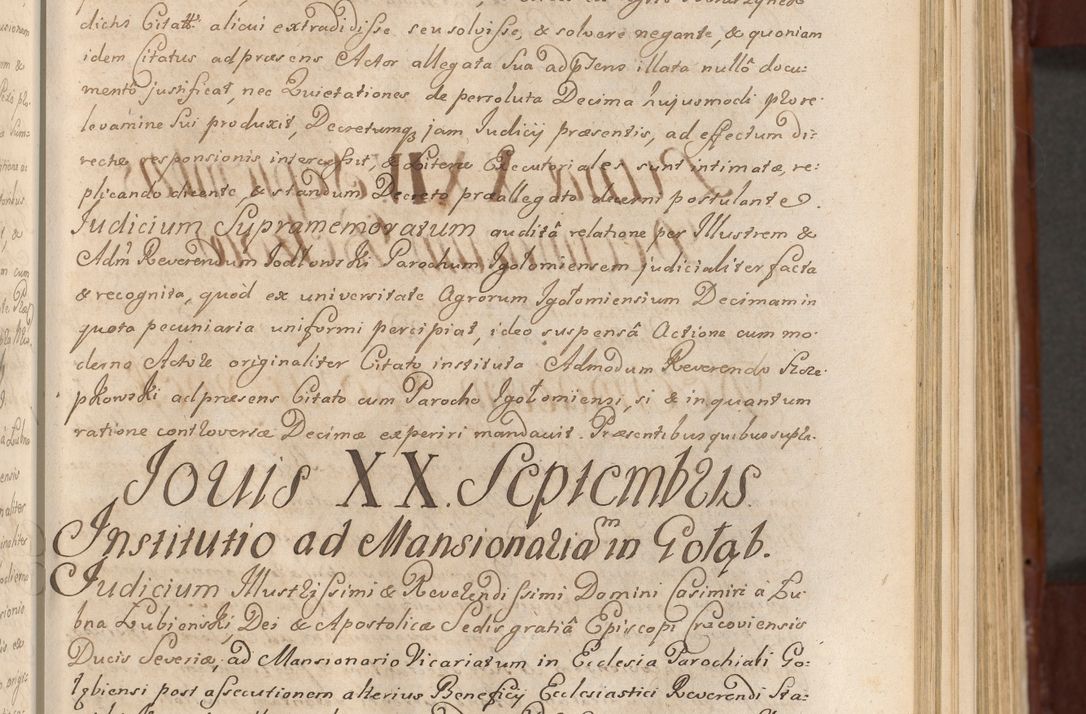 dichi Citatt. alicui extradidisse seu solvisse, & solvere negante, & quoniam
idem Citatus ad præsens Actor allegata sua ad pſens illata nullô docu-
mentô justificat, nec Quietationes de persoluta Decima hujusmodi pro re-
levamine sui produxit, Decretumq₃ jam Iudicij præsentis, ad effectum di-
rectæ responsionis intercessit, & Literæ Executoriales sunt intimatæ, re-
plicando dicente, & standum Decreto præallegato decerni postulante.
Iudicium Supramemoratum auditâ relatione per Illustrem &
Adm Reverendum Iodłowski Parochum Igołomiensem judicialiter facta
& recognita, quòd ex universitate Agrorum Igołomiensium Decimam in
quota pecuniaria uniformi percipiat, ideo suspensâ Actione cum mo-
derno Actore originaliter Citato instituta Admodum Reverendo Szcze-
pkowski ad præsens Citato cum Parocho Igołomiensi, si & in quantum
ratione controversæ Decimæ experiri mandavit. Præsentibus quibus supra.
Iovis XX. Septembris.
Institutio ad Mansionariam in Gołąb.
Iudicium Illustrissimi & Reverendissimi Domini Casimiri à Łu-
bna Łubieński, Dei & Apostolicæ Sedis gratiâ Episcopi Cracoviensis
Ducis Severiæ, ad Mansionario Vicariatum in Ecclesia Parochiali Go-
łębiensi post assecutionem alterius Beneficij Ecclesiastici Reverendi Sta-